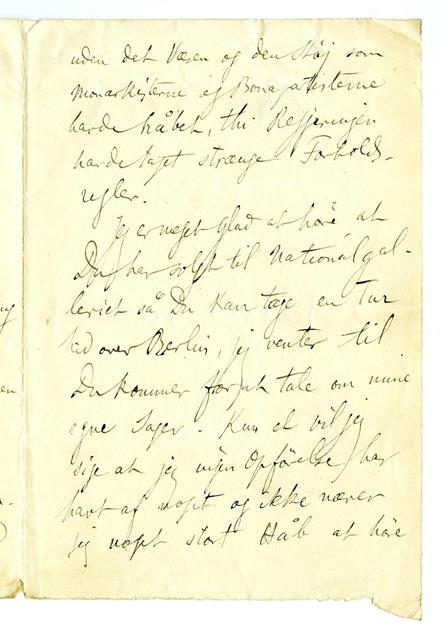 uden det Væsen og den Støj som
Monarkisterne og Bonapartisterne
havde håbet, thi Regjeringen
havde taget strænge Forholds-
regler.
Jeg er meget glad at høre at
Du har solgt til Nationalgal-
leriet så Du kan tage en Tur
ud over Berlin, jeg venter til
Du kommer for at tale om mine
egne Sager. Kun et vil jeg
sige at jeg ingen Opførelse har
havt af noget og ikke nærer
jeg noget stort Håb at høre
en